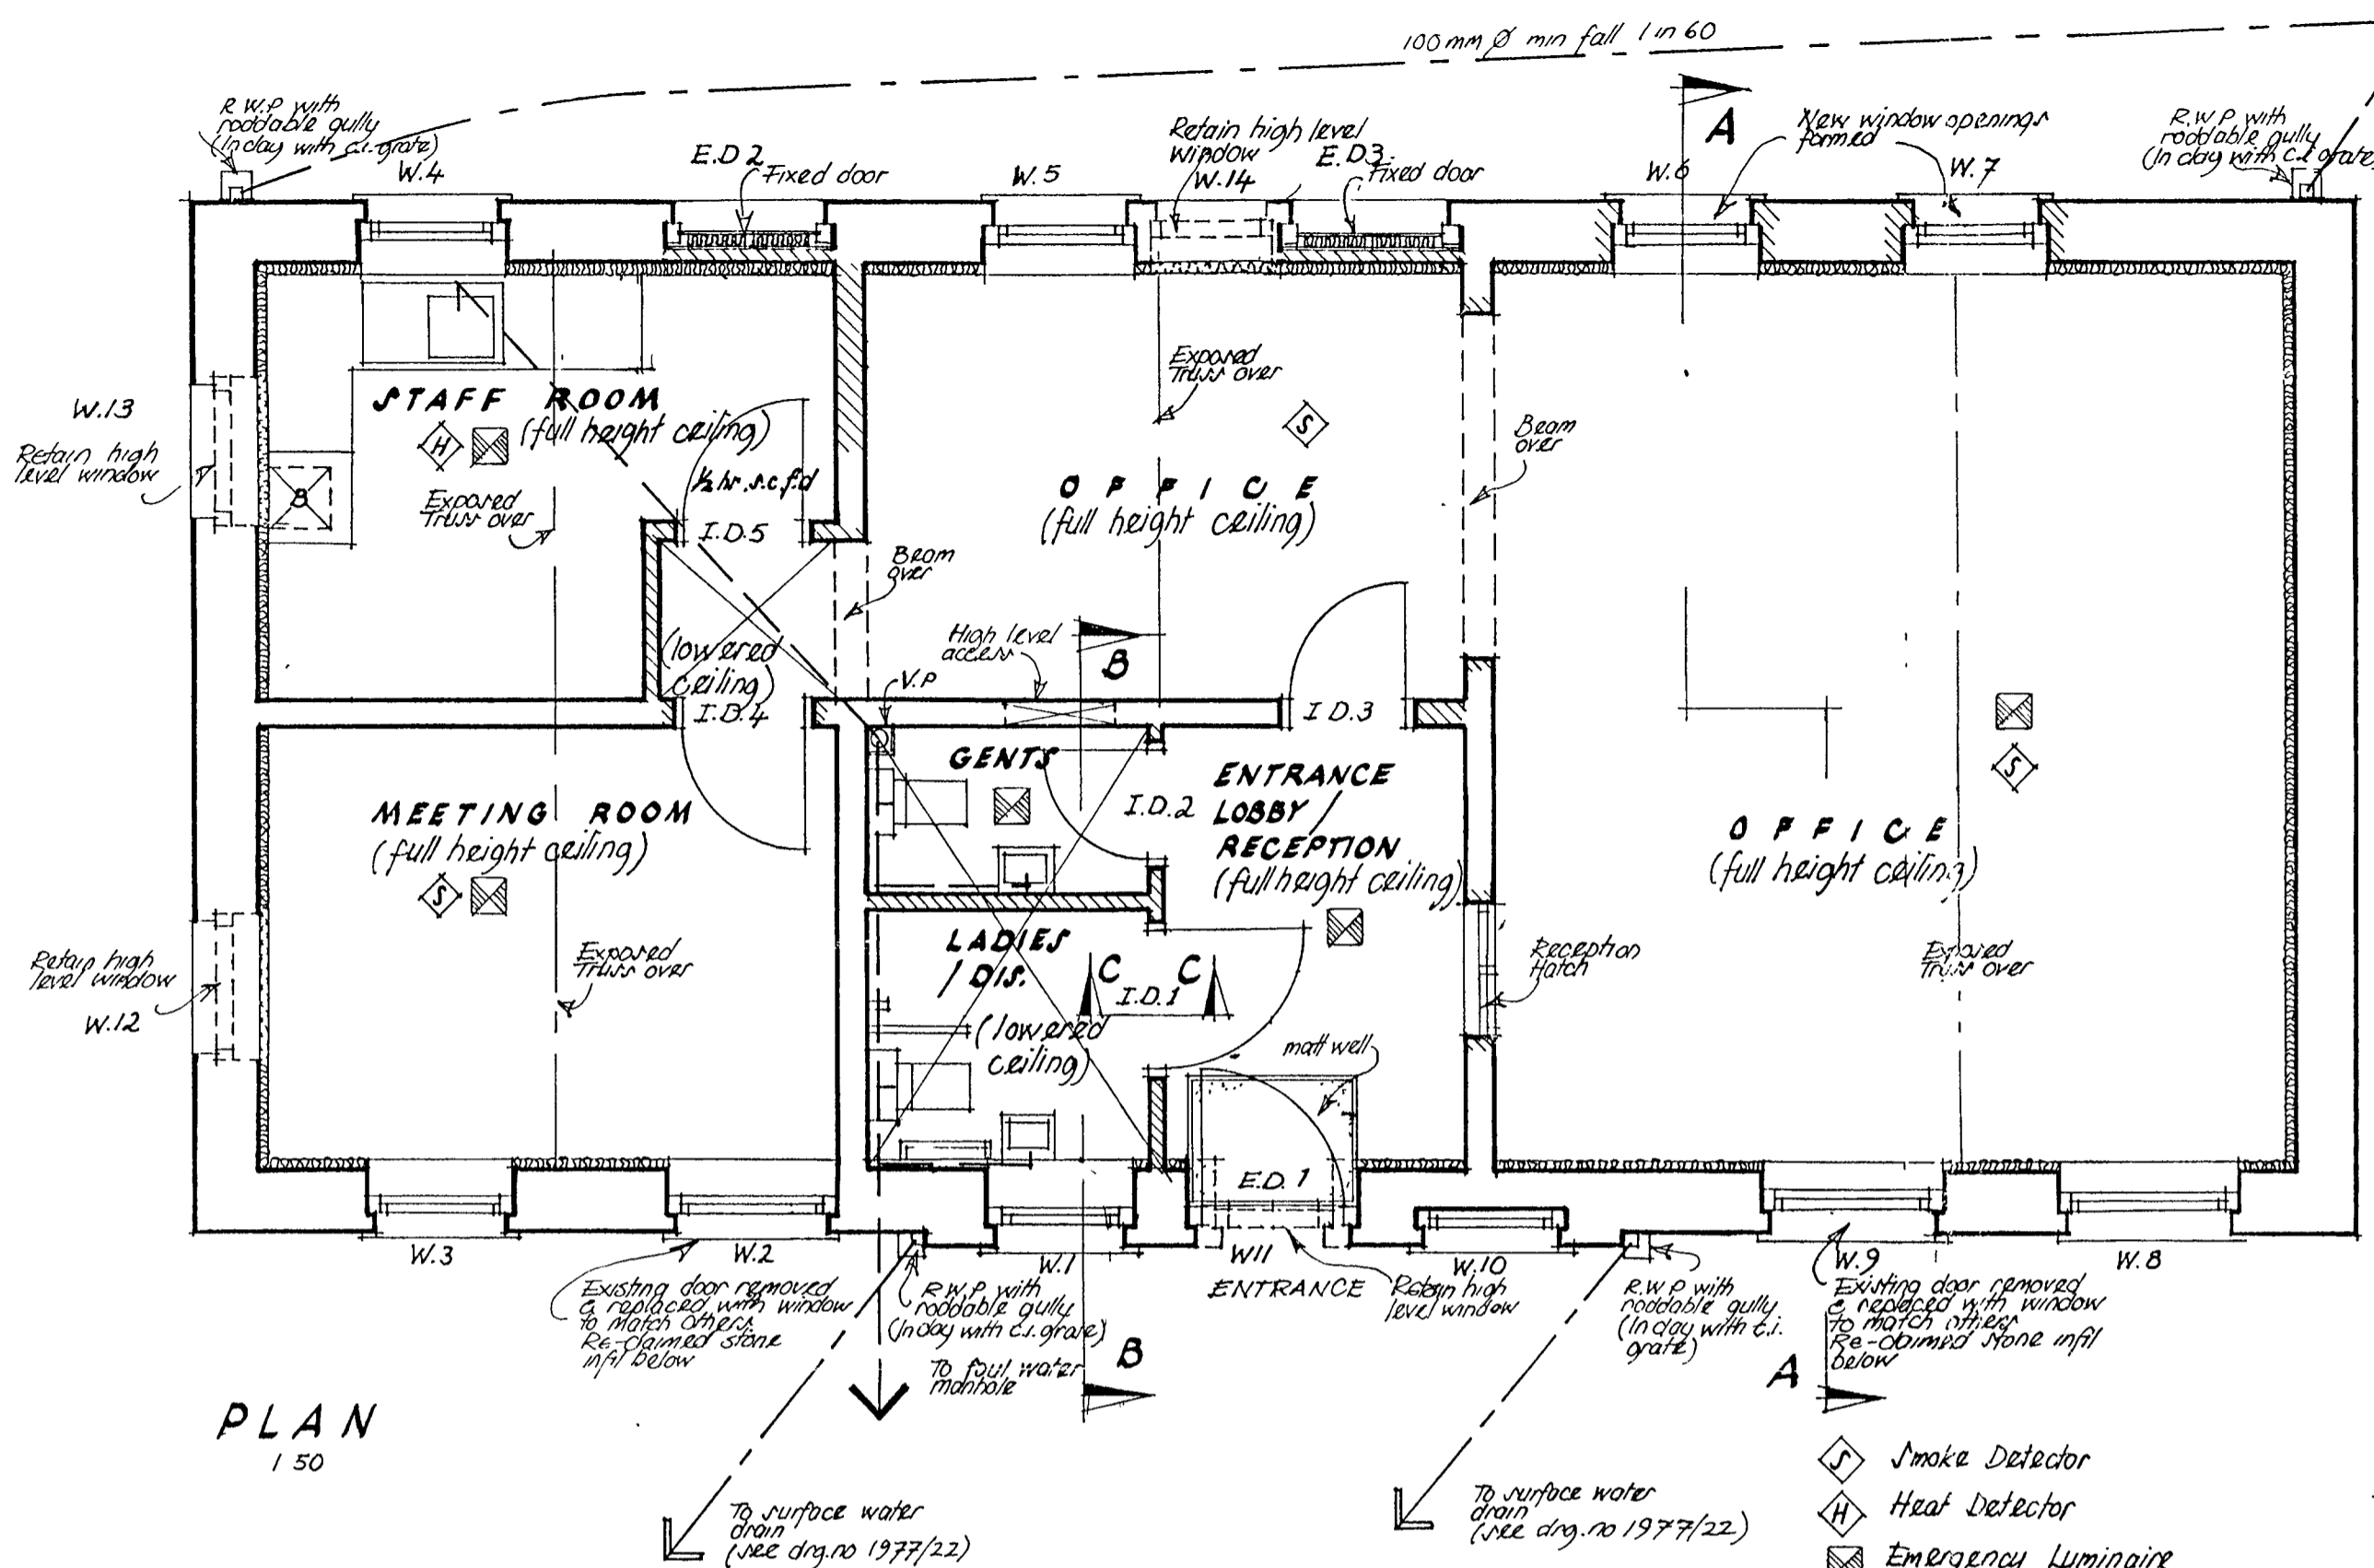 100mm Ø min fall 1 in 60
R.W.P with
roddable gully
(In clay with c.i. grate)
W.4
E.D 2
Fixed door
W.5
Retain high level
window
W.14
E.D3
Fixed door
A
W.6
New window openings
formed
W.7
R.W.P with
roddable gully
(In clay with c.i. grate)
W.13
Retain high
level window
STAFF ROOM
(full height ceiling)
H
B
Exposed
Truss over
½ hr. s.c.f.d
I.D.5
Beam
over
(lowered
ceiling)
I.D.4
Exposed
Truss over
S
OFFICE
(full height ceiling)
Beam
over
High level
access
B
V.P
I.D.3
GENTS
I.D.2
ENTRANCE
LOBBY /
RECEPTION
(full height ceiling)
MEETING ROOM
(full height ceiling)
S
Exposed
Truss over
Retain high
level window
W.12
LADIES
/ DIS.
(lowered
ceiling)
C C
I.D.1
matt well
Reception
Hatch
S
OFFICE
(full height ceiling)
Exposed
Truss over
E.D.1
W.3
W.2
Existing door removed
& replaced with window
to match others.
Re-claimed stone
infil below
R.W.P with
roddable gully
(In clay with c.i. grate)
W.1
W11
ENTRANCE
Retain high
level window
W.10
R.W.P with
roddable gully
(In clay with c.i.
grate)
W.9
Existing door removed
& replaced with window
to match others
Re-claimed stone infil
below
W.8
To foul water
manhole
B
A
PLAN
1 50
To surface water
drain
(see drg.no 1977/22)
To surface water
drain
(see drg.no 1977/22)
S Smoke Detector
H Heat Detector
Emergency Luminaire